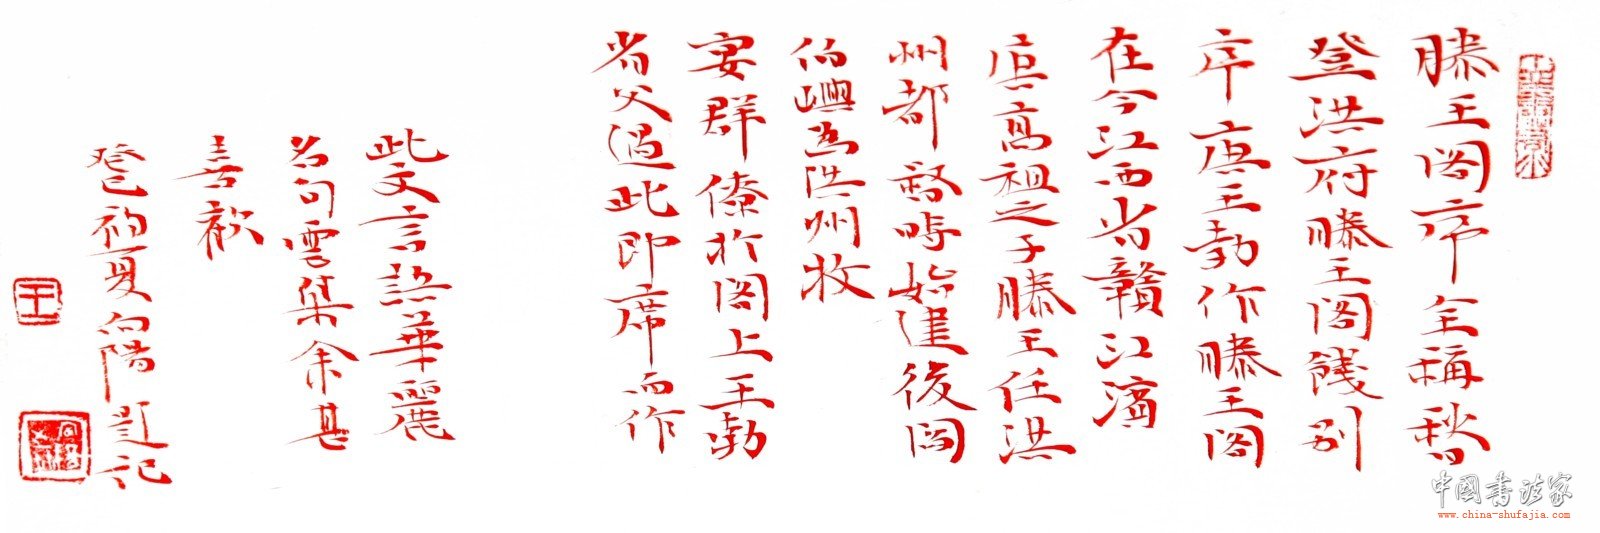 滕王阁序全稱秋日
登洪府滕王阁餞别
序唐王勃作滕王阁
在今江西省贛江濱
唐高祖之子滕王任洪
州都督時始建後閻
伯嶼為洪州牧
宴群僚於阁上王勃
省父過此即席而作
此文言語華麗
名句雲集余甚
喜歡
癸巳初夏向陽题记
王
中国书法家
www.china-shufajia.com